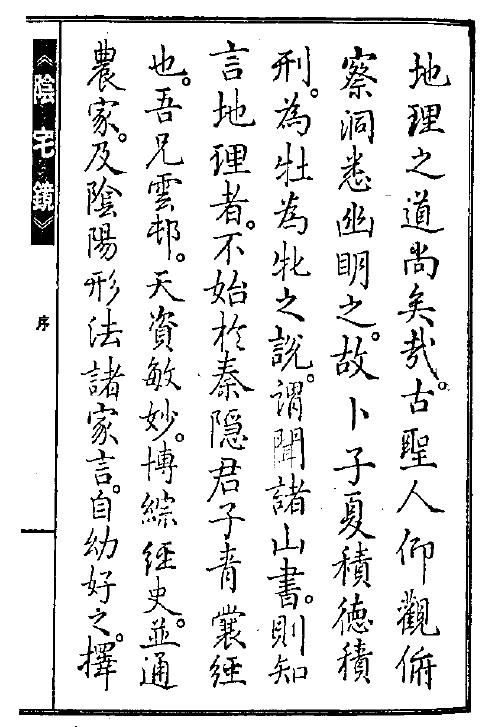 地理之道尚矣哉。古聖人仰觀俯
察洞悉幽明之。故卜子夏積德積
刑。為牡為牝之說。謂聞諸山書。則知
言地理者。不始於秦隱君子青囊經
也。吾兄雲邨。天資敏妙。博綜經史。並通
農家。及陰陽形法諸家言。自幼好之。擇
《陰宅鏡》
序